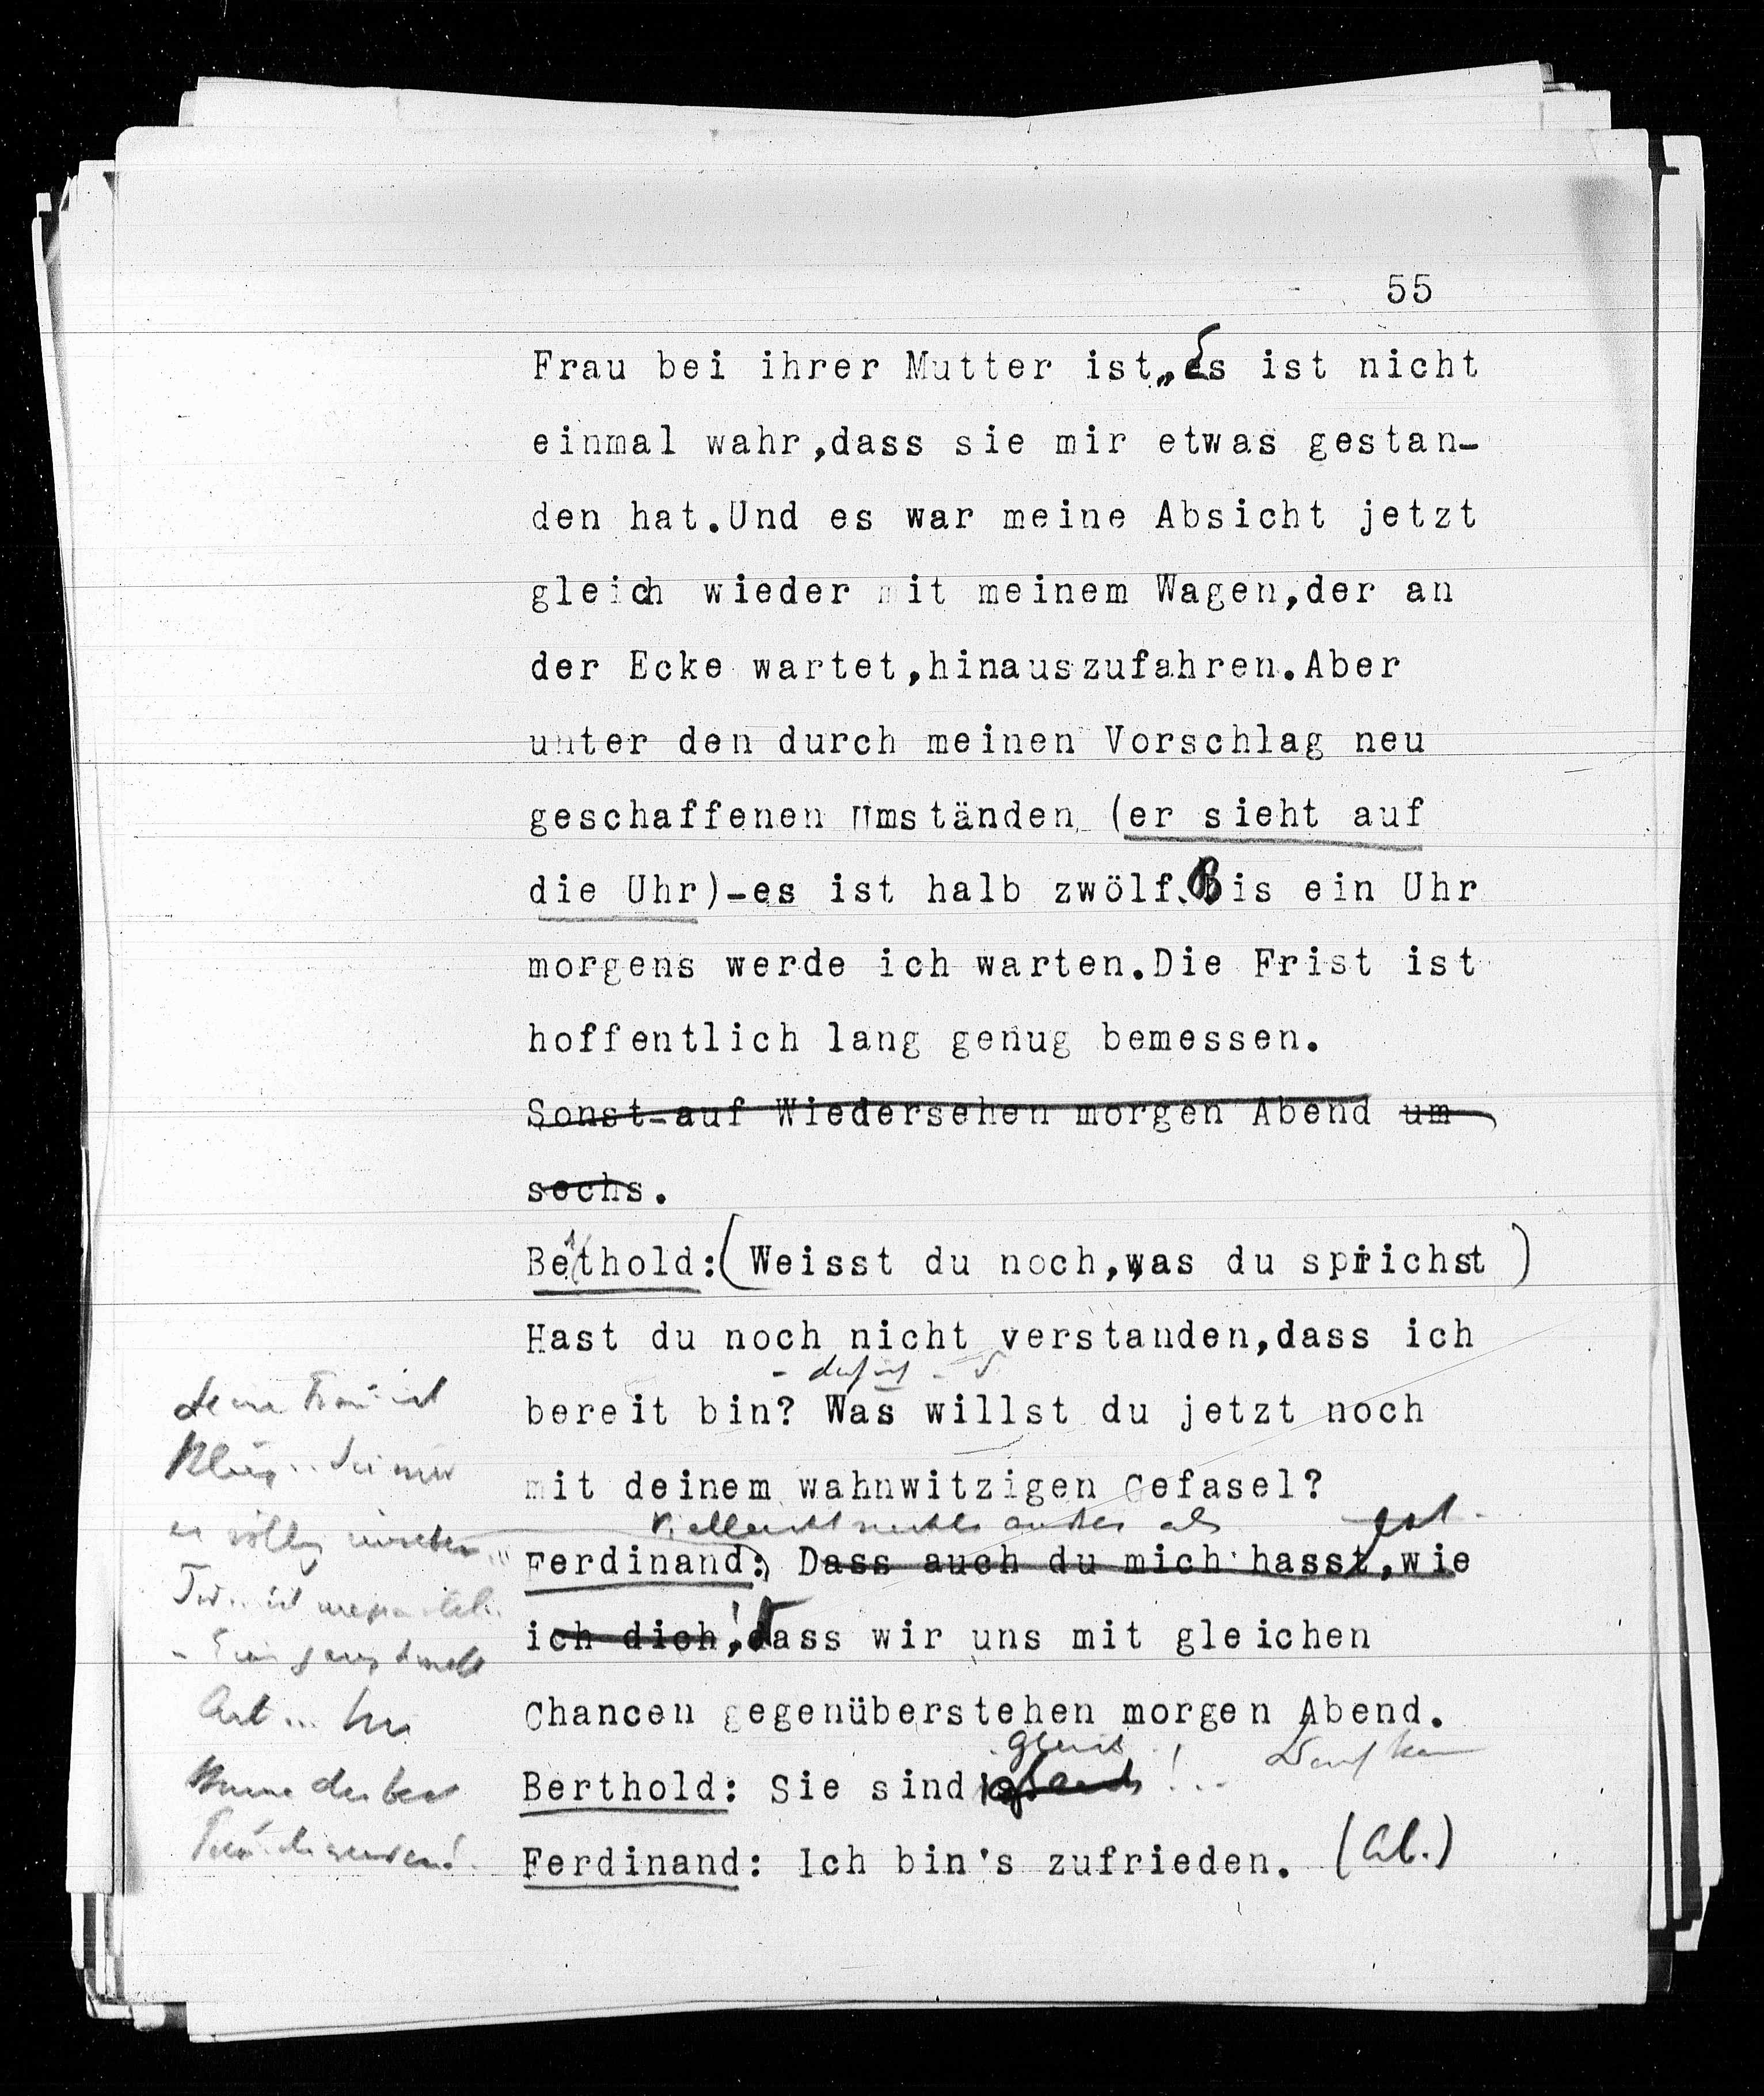 55
Frau bei ihrer Mutter ist, es ist nicht
einmal wahr,dass sie mir etwas gestan-
den hat.Und es war meine Absicht jetzt
gleich wieder mit meinem Wagen,der an
der Ecke wartet,hinauszufahren.Aber
unter den durch meinen Vorschlag neu
geschaffenen Umständen (er sieht auf
die Uhr)-es ist halb zwölf. Bis ein Uhr
morgens werde ich warten.Die Frist ist
hoffentlich lang genug bemessen.
Sonst-auf Wiedersehen morgen Abend um
sechs.
Berthold:(Weisst du noch,was du sprichst)
Hast du noch nicht verstanden,dass ich
bereit bin? Was willst du jetzt noch
mit deinem wahnwitzigen Gefasel?
Vielleicht nichts andres als
Ferdinand: Dass auch du mich hasst,wie
ich dich! dass wir uns mit gleichen
Chancen gegenüberstehen morgen Abend.
gleich
Berthold: Sie sind !..
Ferdinand: Ich bin's zufrieden. (Ab.)